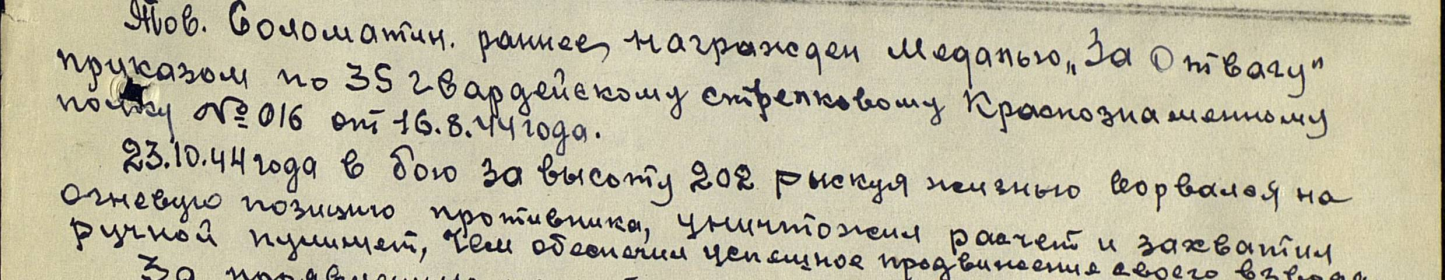 Тов. Соломатин. раннее, награжден Медалью „За Отвагу"
приказом по 35 гвардейскому стрелковому Краснознаменному
полку № 016 от 16.8.44 года.
23.10.44 года в бою за высоту 202 рыскуя жизнью ворвался на
огневую позицию противника, уничтожил расчет и захватил
ручной пулимет, чем обеспечил успешное продвижение своего взвода
За